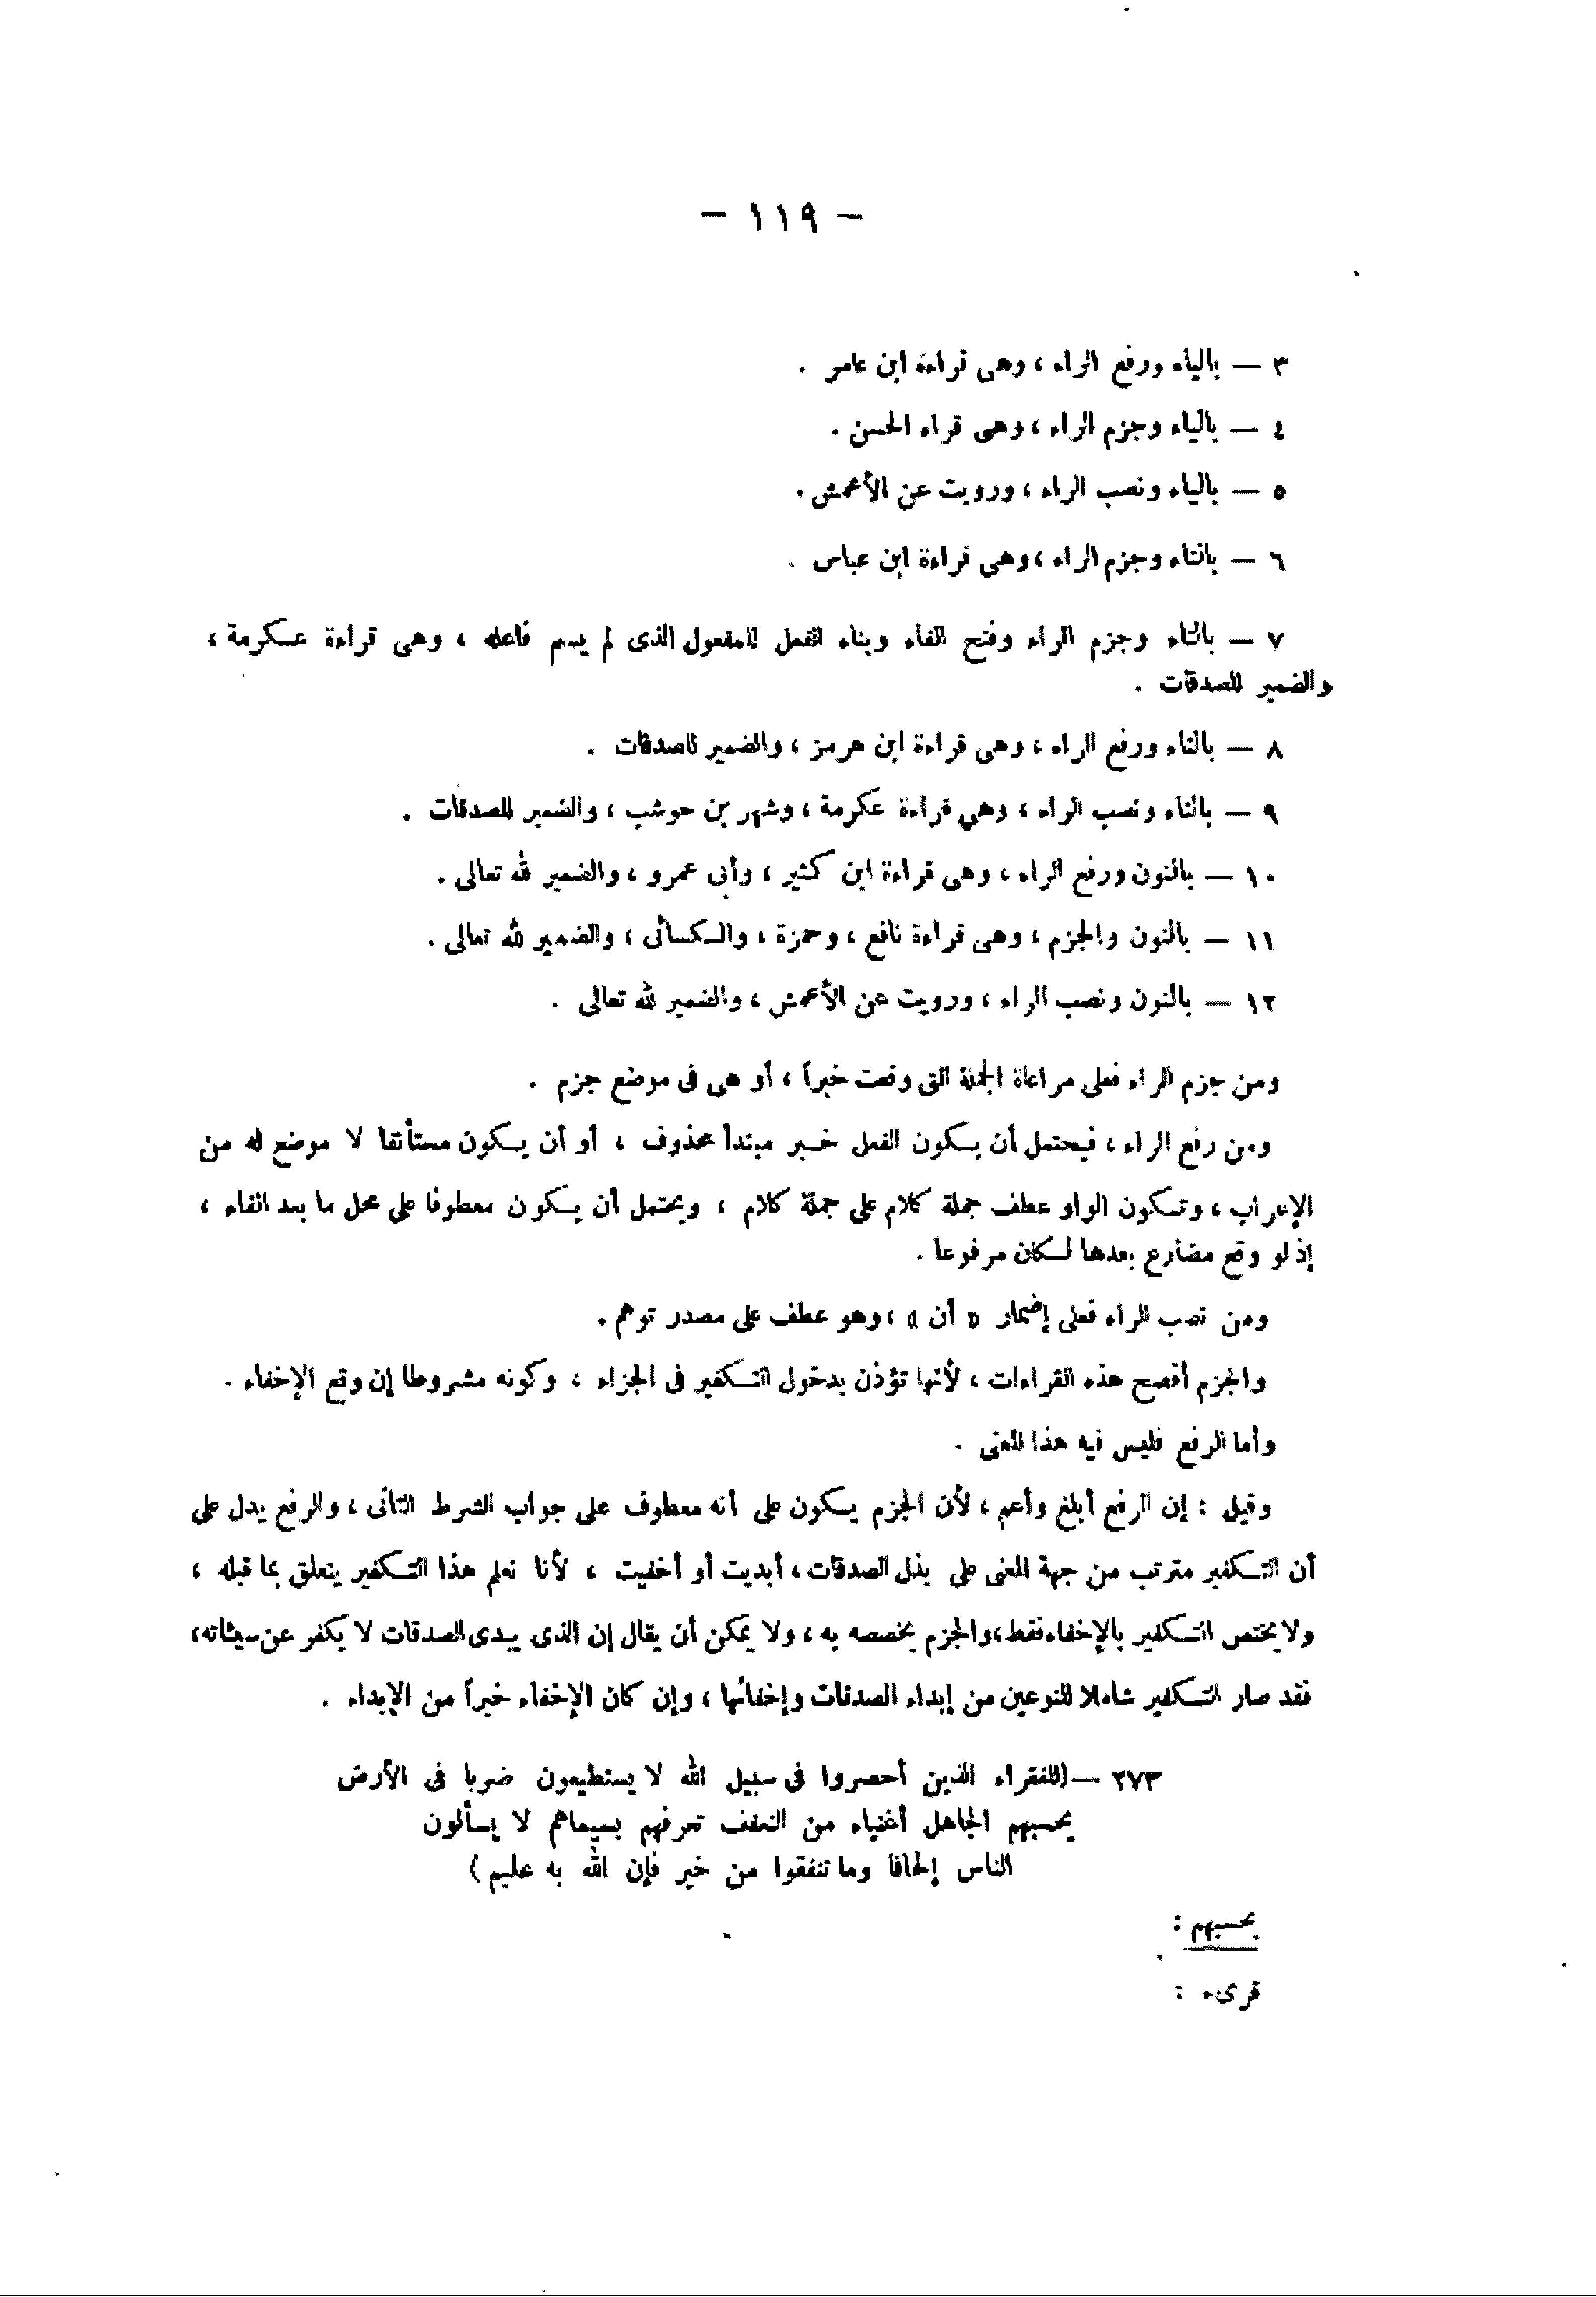 — ١١٩ —
٣ — بالياء ورفع الراء ، وهى قراءة ابن عامر .
٤ — بالياء وجزم الراء ، وهى قراء الحسن .
٥ — بالياء ونصب الراء ، ورويت عن الأعمش .
٦ — بالتاء وجزم الراء ، وهى قراءة ابن عباس .
٧ — بالتاء وجزم الراء وفتح الفاء وبناء الفعل للمفعول الذى لم يسم فاعله ، وهى قراءة عكرمة ،
والضمير للصدقات .
٨ — بالتاء ورفع الراء ، وهى قراءة ابن هرمز ، والضمير للصدقات .
٩ — بالتاء ونصب الراء ، وهي قراءة عكرمة ، وشهر بن حوشب ، والضمير للصدقات .
١٠ — بالنون ورفع الراء ، وهى قراءة ابن كثير ، وأبى عمرو ، والضمير لله تعالى .
١١ — بالنون والجزم ، وهى قراءة نافع ، وحمزة ، والكسائى ، والضمير لله تعالى .
١٢ — بالنون ونصب الراء ، ورويت عن الأعمش ، والضمير لله تعالى .
ومن جزم الراء فعلى مراعاة الجملة التى وقعت خبراً ، أو هى فى موضع جزم .
ومن رفع الراء ، فيحتمل أن يكون الفعل خبر مبتدأ محذوف ، أو أن يكون مستأنفا لا موضع له من
الإعراب ، وتكون الواو عطف جملة كلام على جملة كلام ، ويحتمل أن يكون معطوفا على محل ما بعد الفاء ،
إذ لو وقع مضارع بعدها لكان مرفوعا .
ومن نصب الراء فعلى إضمار « أن » ، وهو عطف على مصدر توهم .
والجزم أفصح هذه القراءات ، لأنها تؤذن بدخول التكفير فى الجزاء ، وكونه مشروطا إن وقع الإخفاء .
وأما الرفع فليس فيه هذا المعنى .
وقيل : إن الرفع أبلغ وأعم ، لأن الجزم يكون على أنه معطوف على جواب الشرط الثانى ، والرفع يدل على
أن التكفير مترتب من جهة المعنى على بذل الصدقات ، أبديت أو أخفيت ، لأنا نعلم هذا التكفير يتعلق بما قبله ،
ولا يختص التكفير بالإخفاء فقط ، والجزم يخصصه به ، ولا يمكن أن يقال إن الذى يبدى الصدقات لا يكفر عن سيئاته ،
فقد صار التكفير شاملا للنوعين من إبداء الصدقات وإخفائها ، وإن كان الإخفاء خيراً من الإبداء .
٢٧٣ — (للفقراء الذين أحصروا فى سبيل الله لا يستطيعون ضربا فى الأرض
يحسبهم الجاهل أغنياء من التعفف تعرفهم بسيماهم لا يسألون
الناس إلحافا وما تنفقوا من خير فإن الله به عليم)
يحسبهم :
قرىء :